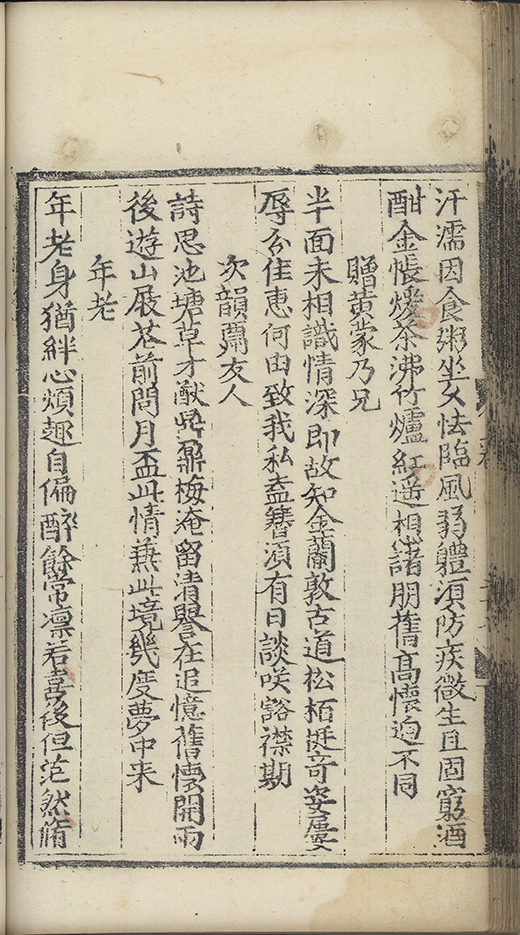 汗濡因食粥坐久怯臨風弱體湏防疾微生且固窮酒
酣金帳煖茶沸竹爐紅遥想諸朋舊高懷逈不同
贈黄蒙乃兄
半面未相識情深即故知金蘭敦古道松栢挺奇姿屢
辱分佳惠何由致我私盍簪湏有日談咲豁襟期
次韻友人
詩思池塘草才猷鼎鼐梅淹留清譽在追憶舊懷開雨
後遊山屐花前問月盃此情兼此境幾度夢中来
年老
年老身猶絆心煩趣自偏醉餘常凛若喜後但茫然脩